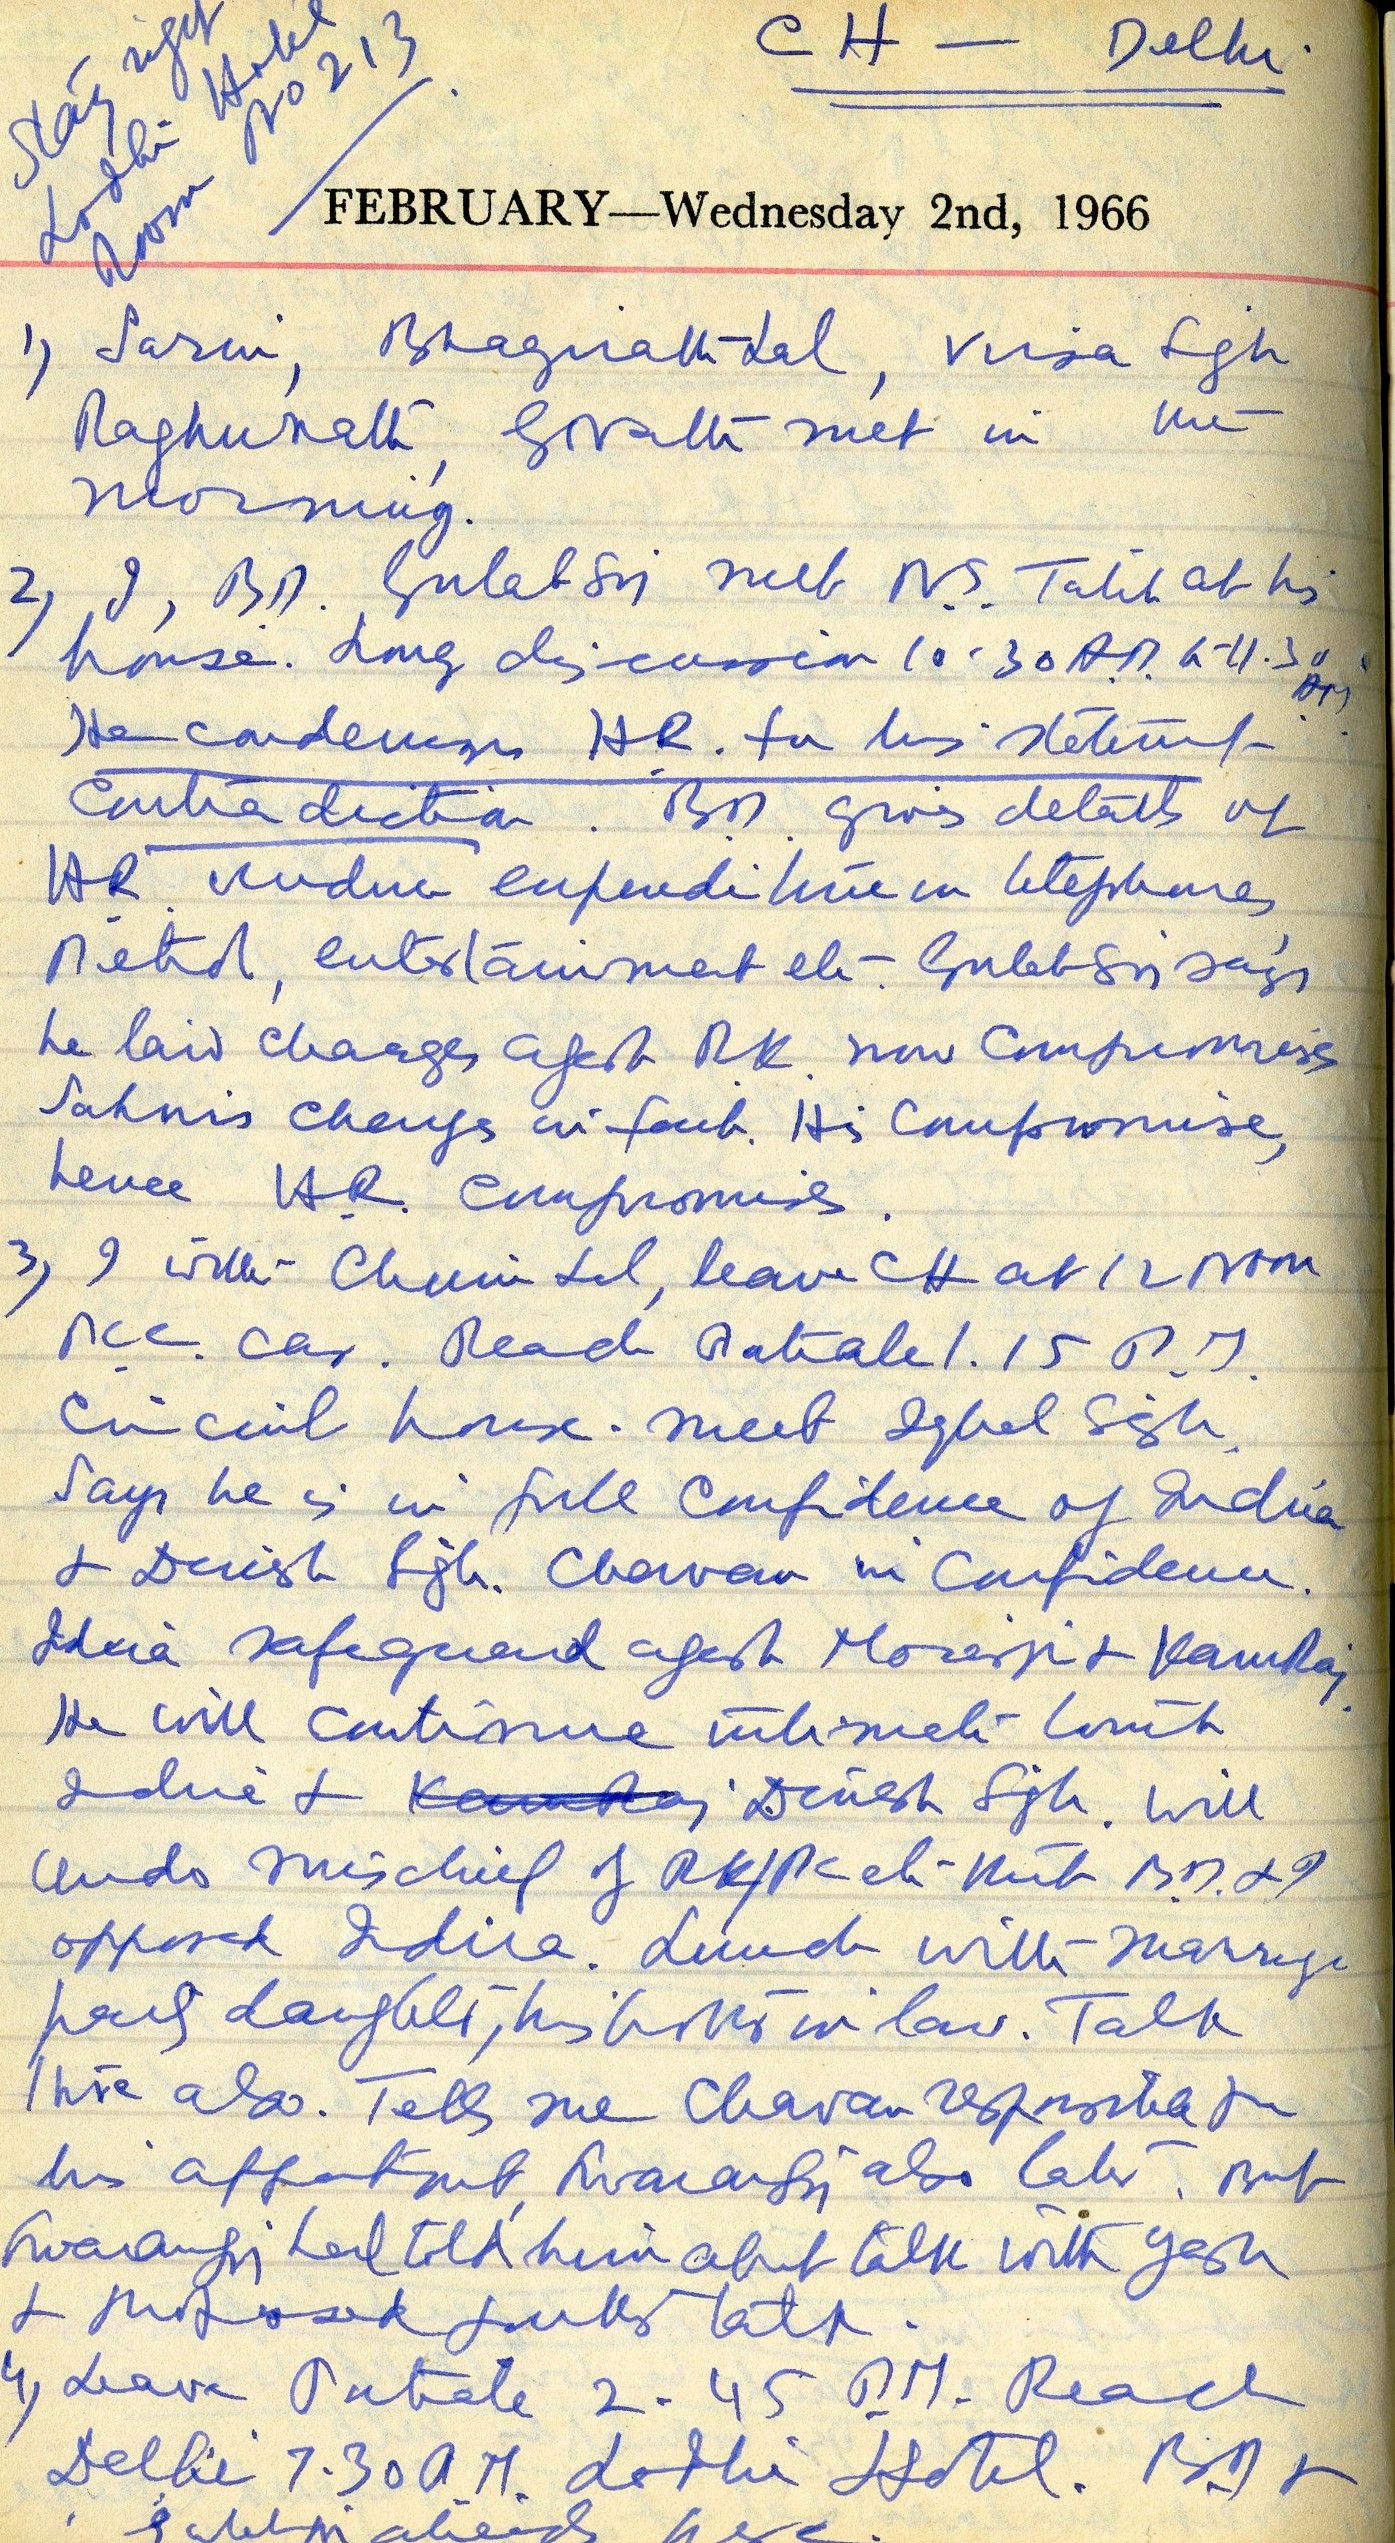 Stay night
Lodhi Hotel
Room No 213
CH — Delhi
FEBRUARY—Wednesday 2nd, 1966
1) Sarin, Bhagirath Lal, Virsa Sgh
Raghunath, met in the
morning.
2) I, B.D. Gulab Sgj meet N.S. Talib at his
house. Long discussion 10.30 A.M. to 11.30 AM
He condemns H.R. for his statement
contradiction. B.D. gives details of
H.R. undue expenditure on telephones,
Petrol, entertainment etc. Gulab Sgj says
he laid charges agst R.K. now compromises
Sahnis charges in fact. His compromise,
hence H.R. compromises.
3) I with Chuni Lal, leave CH at 12 noon
P.C.C. car. Reach Patiala 1.15 P.M.
Circuit house. meet Iqbal Sgh.
Says he is in full confidence of Indira
& Dinish Sgh. Chavan in confidence.
safeguard agst Morarji & KamRaj.
He will continue intimate touch
Indira & KamRaj Dinesh Sgh. Will
undo mischief of RK/PC etc that B.D. & I
opposed Indira. Lunch with marriage
party daughter, his brother in law. Talk
there also. Tells me Chavan responsible for
his appointment, Swaransgj also later. But
Swaransgj had told him about talk with Yash
& proposed further talk.
4) Leave Patiala 2.45 P.M. Reach
Delhi 7.30 P.M. Lodhi Hotel. B.D &
already here.